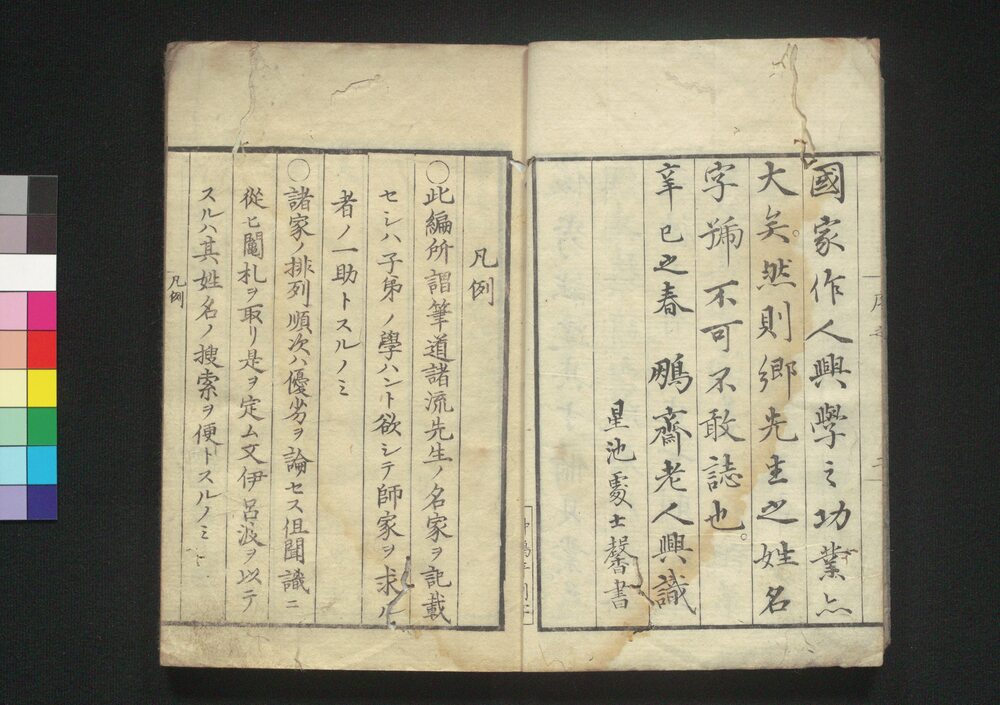 國家作人興學之功業亦
大矣。然則鄉先生之姓名
字號不可不敢誌也。
辛巳之春　鵬齋老人興識
星池處士馨書
凡例
〇此編所謂筆道諸流先生ノ名家ヲ記載
セシハ子弟ノ學ハント欲シテ師家ヲ求ル
者ノ一助トスルノミ
〇諸家ノ排列順次ハ優劣ヲ論セス但聞識ニ
從ヒ鬮札ヲ取リ是ヲ定ム文伊呂波ヲ以テ
スルハ其姓名ノ搜索ヲ便トスルノミ
凡例